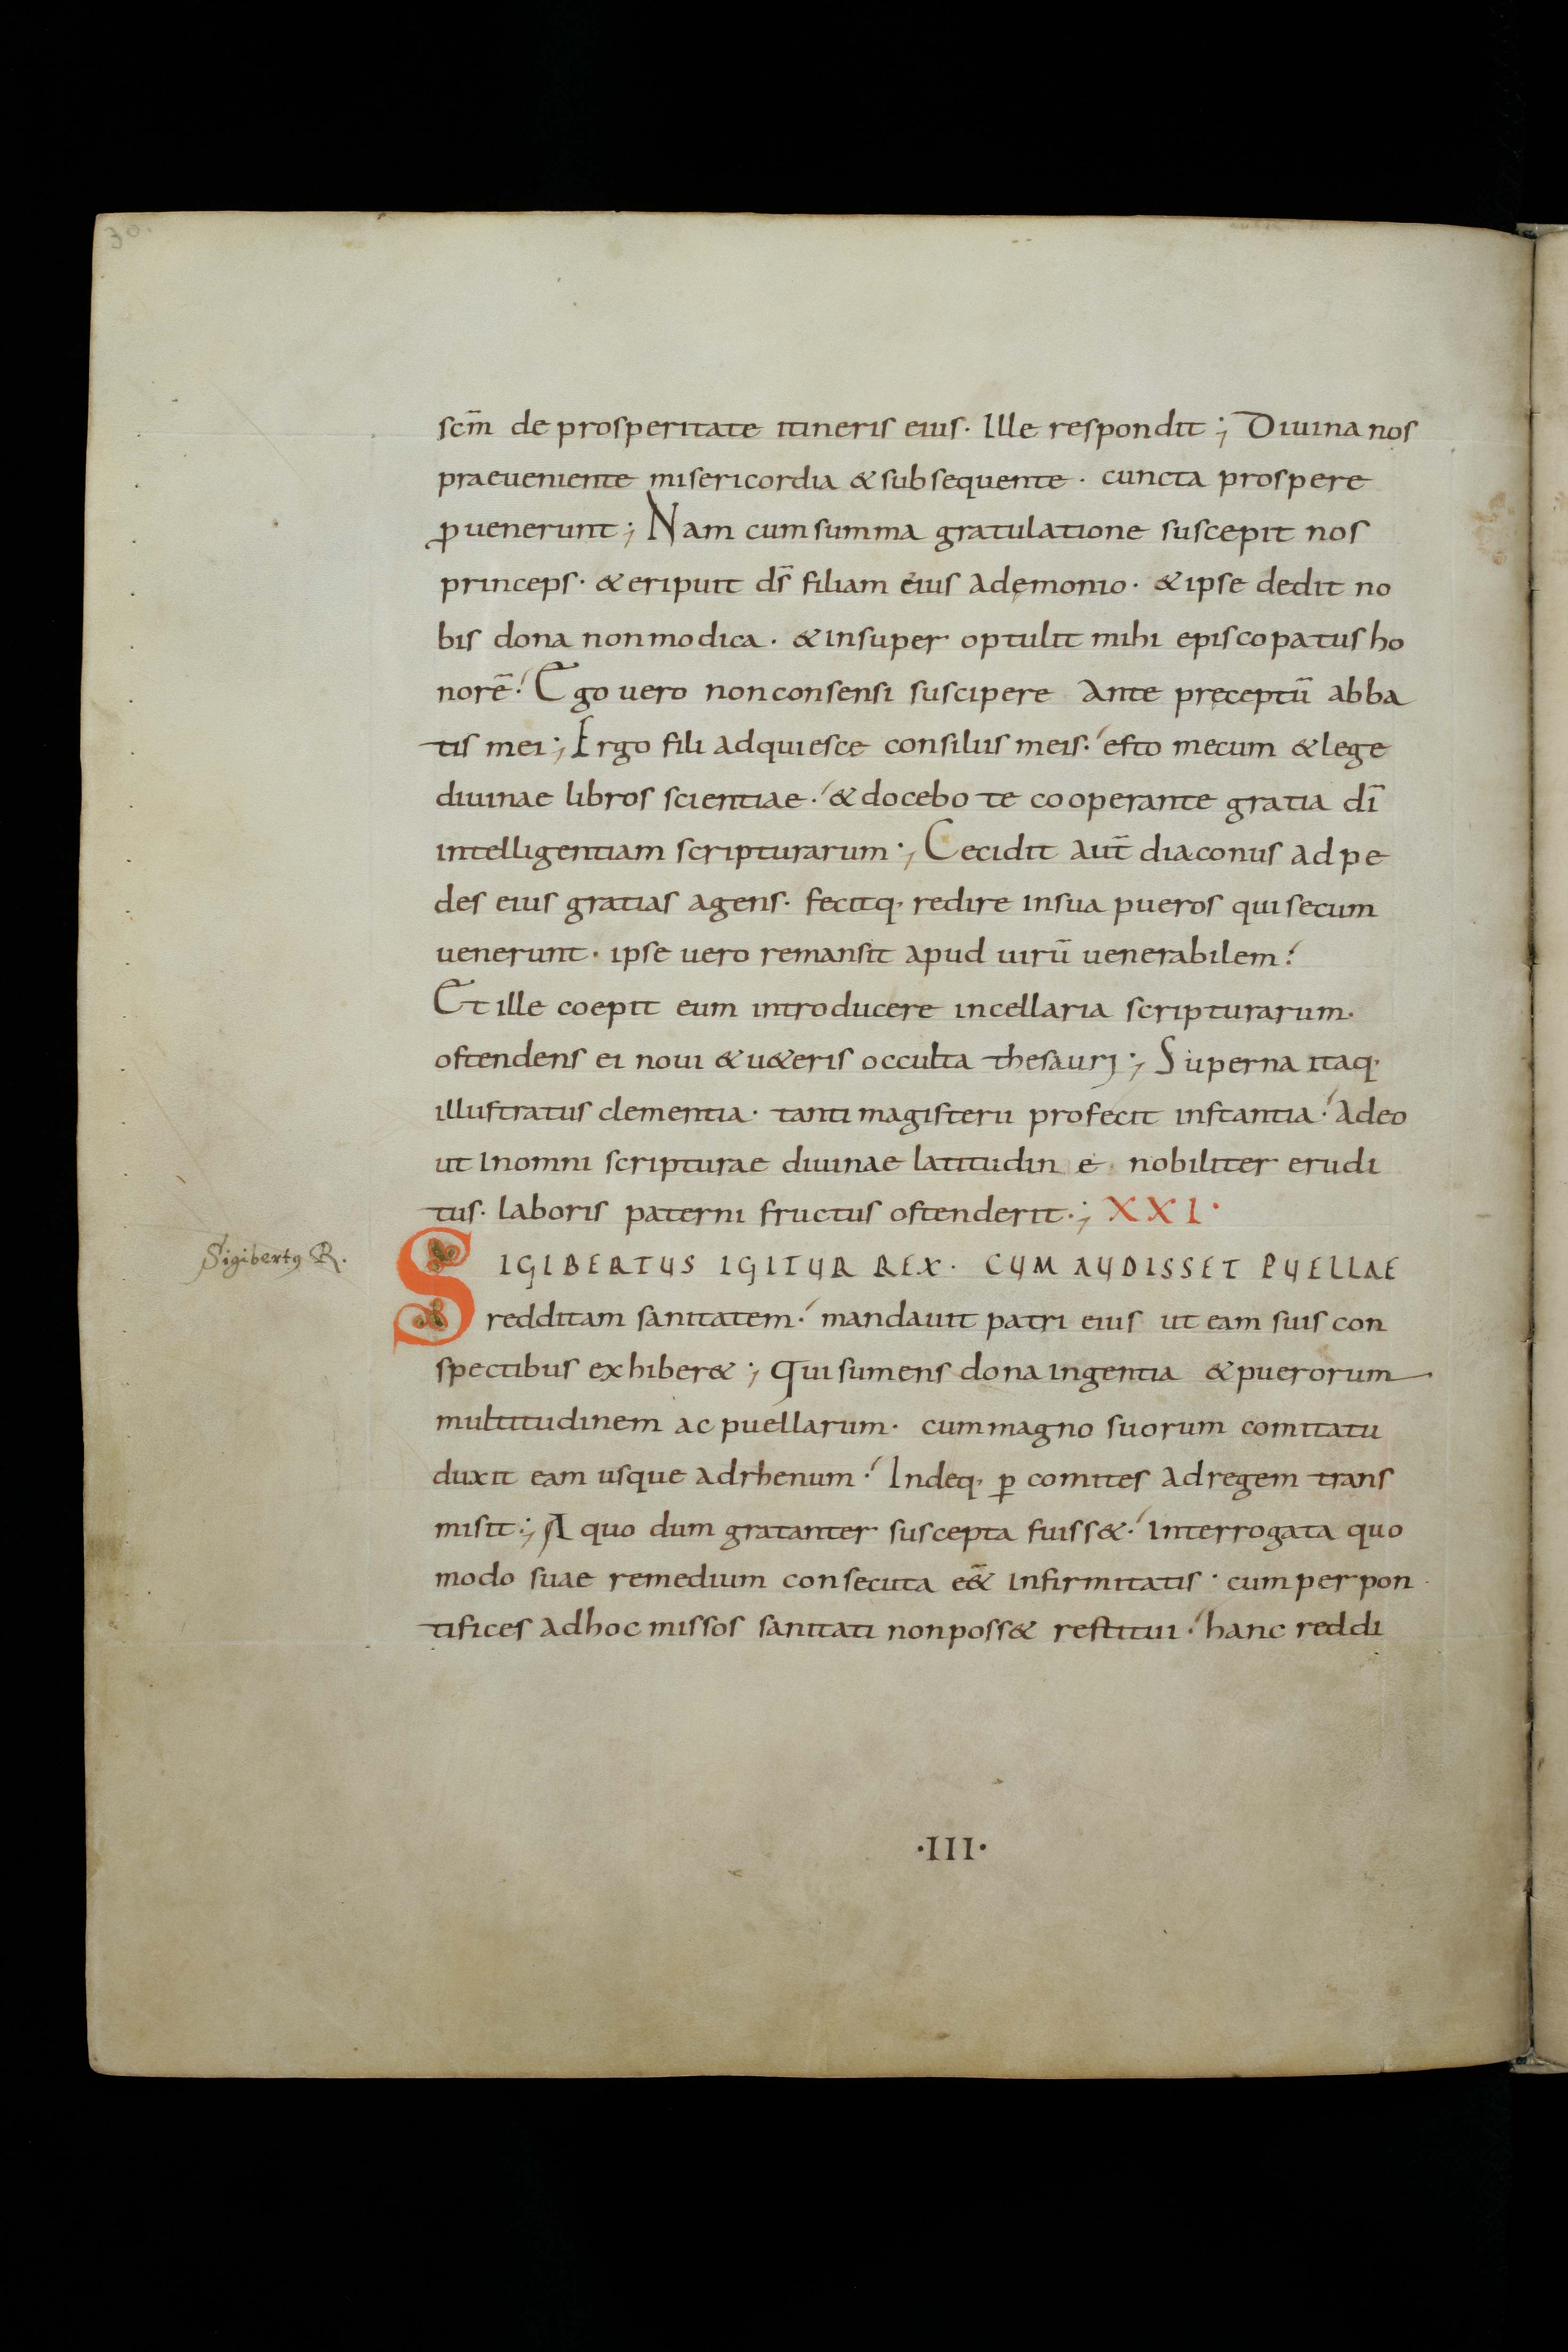 30.
scm̄ de prosperitate itineris eius. Ille respondit; Diuina nos
praeueniente misericordia & subsequente. cuncta prospere
ꝓuenerunt; Nam cum summa gratulatione suscepit nos
princeps. & eripuit ds̄ filiam eius a demonio. & ipse dedit no
bis dona non modica. & insuper optulit mihi episcopatus ho
norē. Ego uero non consensi suscipere ante pręceptū abba
tis mei; Ergo fili adquiesce consiliis meis. esto mecum & lege
diuinae libros scientiae. & docebo te cooperante gratia dī
intelligentiam scripturarum; Cecidit aut̄ diaconus ad pe
des eius gratias agens. fecitq· redire in sua pueros qui secum
uenerunt. ipse uero remansit apud uirū uenerabilem.
Et ille coepit eum introducere in cellaria scripturarum.
ostendens ei noui & u&eris occulta thesauri; Superna itaq·
illustratus clementia. tanti magisterii profecit instantia. Adeo
ut in omni scripturae diuinae latitudine nobiliter erudi
tus. laboris paterni fructus ostenderit; XXI.
Sigibertꝰ R.
SIGIBERTUS IGITUR REX. CUM AUDISSET PUELLAE
redditam sanitatem. mandauit patri eius ut eam suis con
spectibus exhiber&; Qui sumens dona ingentia & puerorum
multitudinem ac puellarum. cum magno suorum comitatu
duxit eam usque ad rhenum. Indeq· ꝑ comites ad regem trans
misit; A quo dum gratanter suscepta fuiss&. Interrogata quo
modo suae remedium consecuta eē& infirmitatis. cum per pon
tifices ad hoc missos sanitati non poss& restitui. hanc reddi
·III·